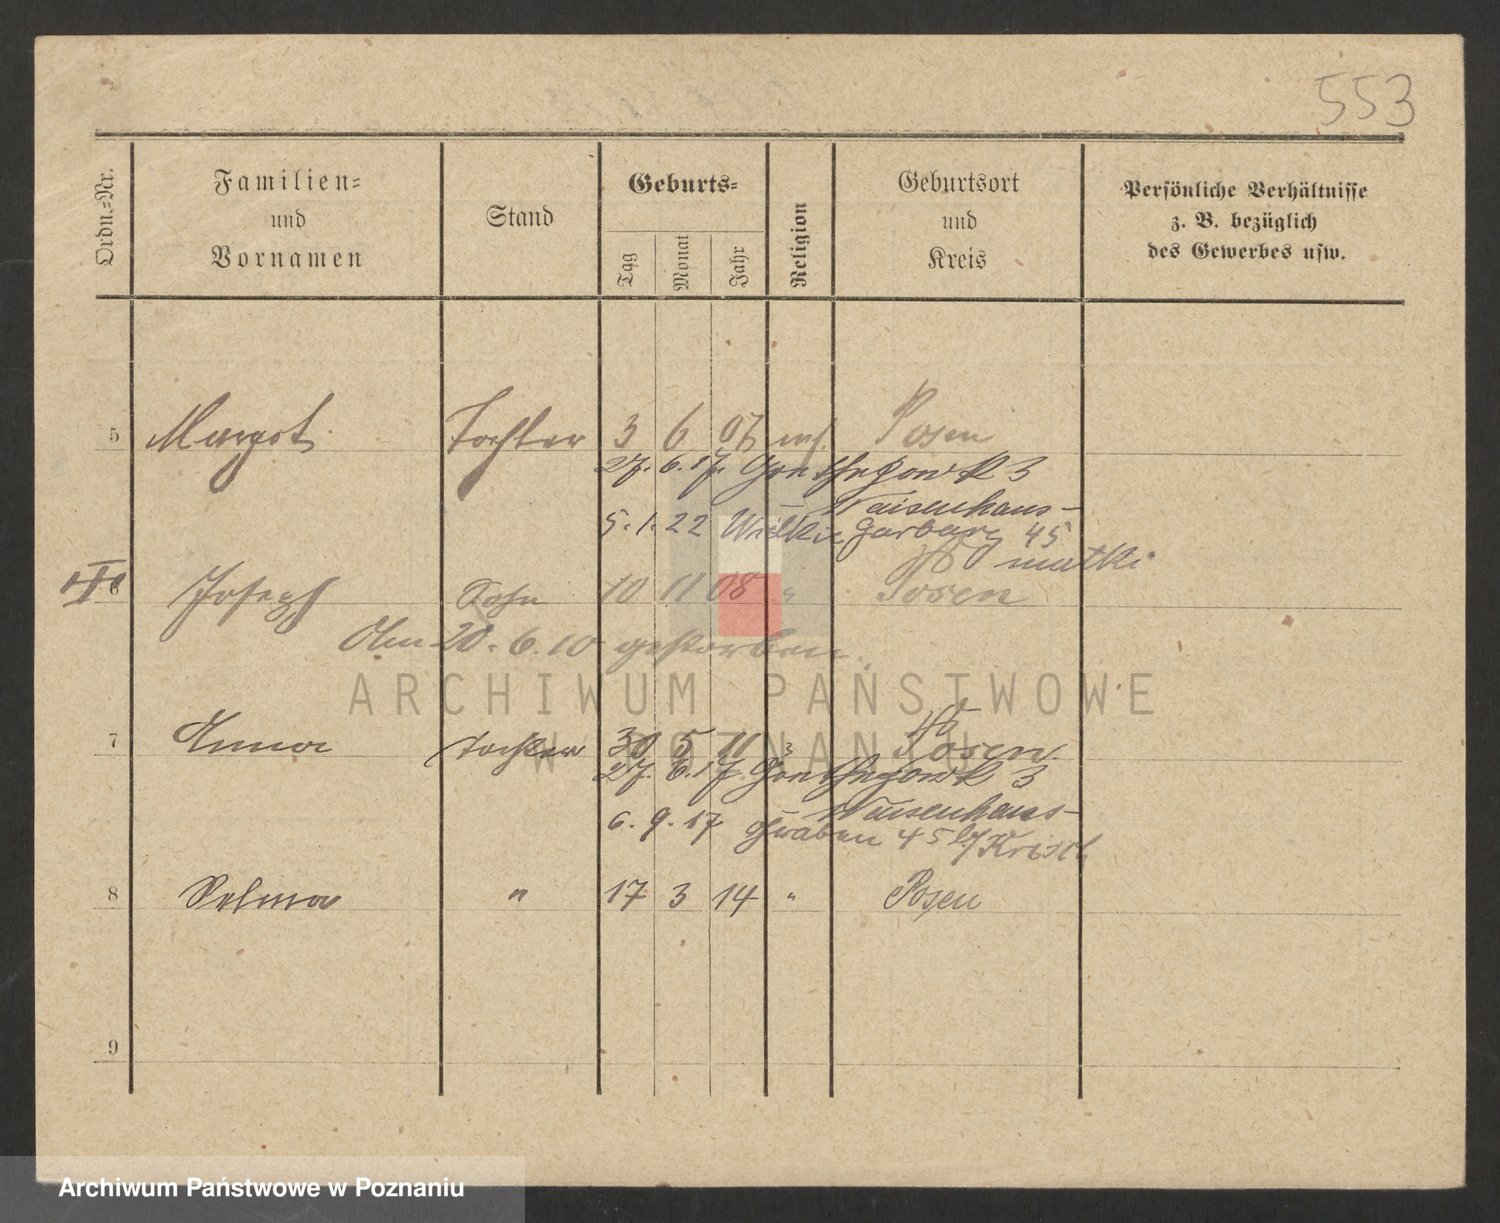 553
Ordn.=Nr.
Familien=
und
Vornamen
Stand
Geburts=
Tag
Monat
Jahr
Religion
Geburtsort
und
Kreis
Persönliche Verhältnisse
z. B. bezüglich
des Gewerbes usw.
5 Margot Tochter 3 6 07 mos. Posen
27. 6. 17. 3
Waisenhaus-
5. 1. 22 Wielkie Garbary 45
matki
6 Joseph Sohn 10 11 08 " Posen
Am 20. 6. 10 gestorben.
7 Anna Tochter 30 5 11 " Posen
27. 6. 17. 3
Waisenhaus-
6. 9. 17 Graben 45 b/ Krisch
8 Selma " 17 3 14 " Posen
9
ARCHIWUM PAŃSTWOWE
W POZNANIU
Archiwum Państwowe w Poznaniu